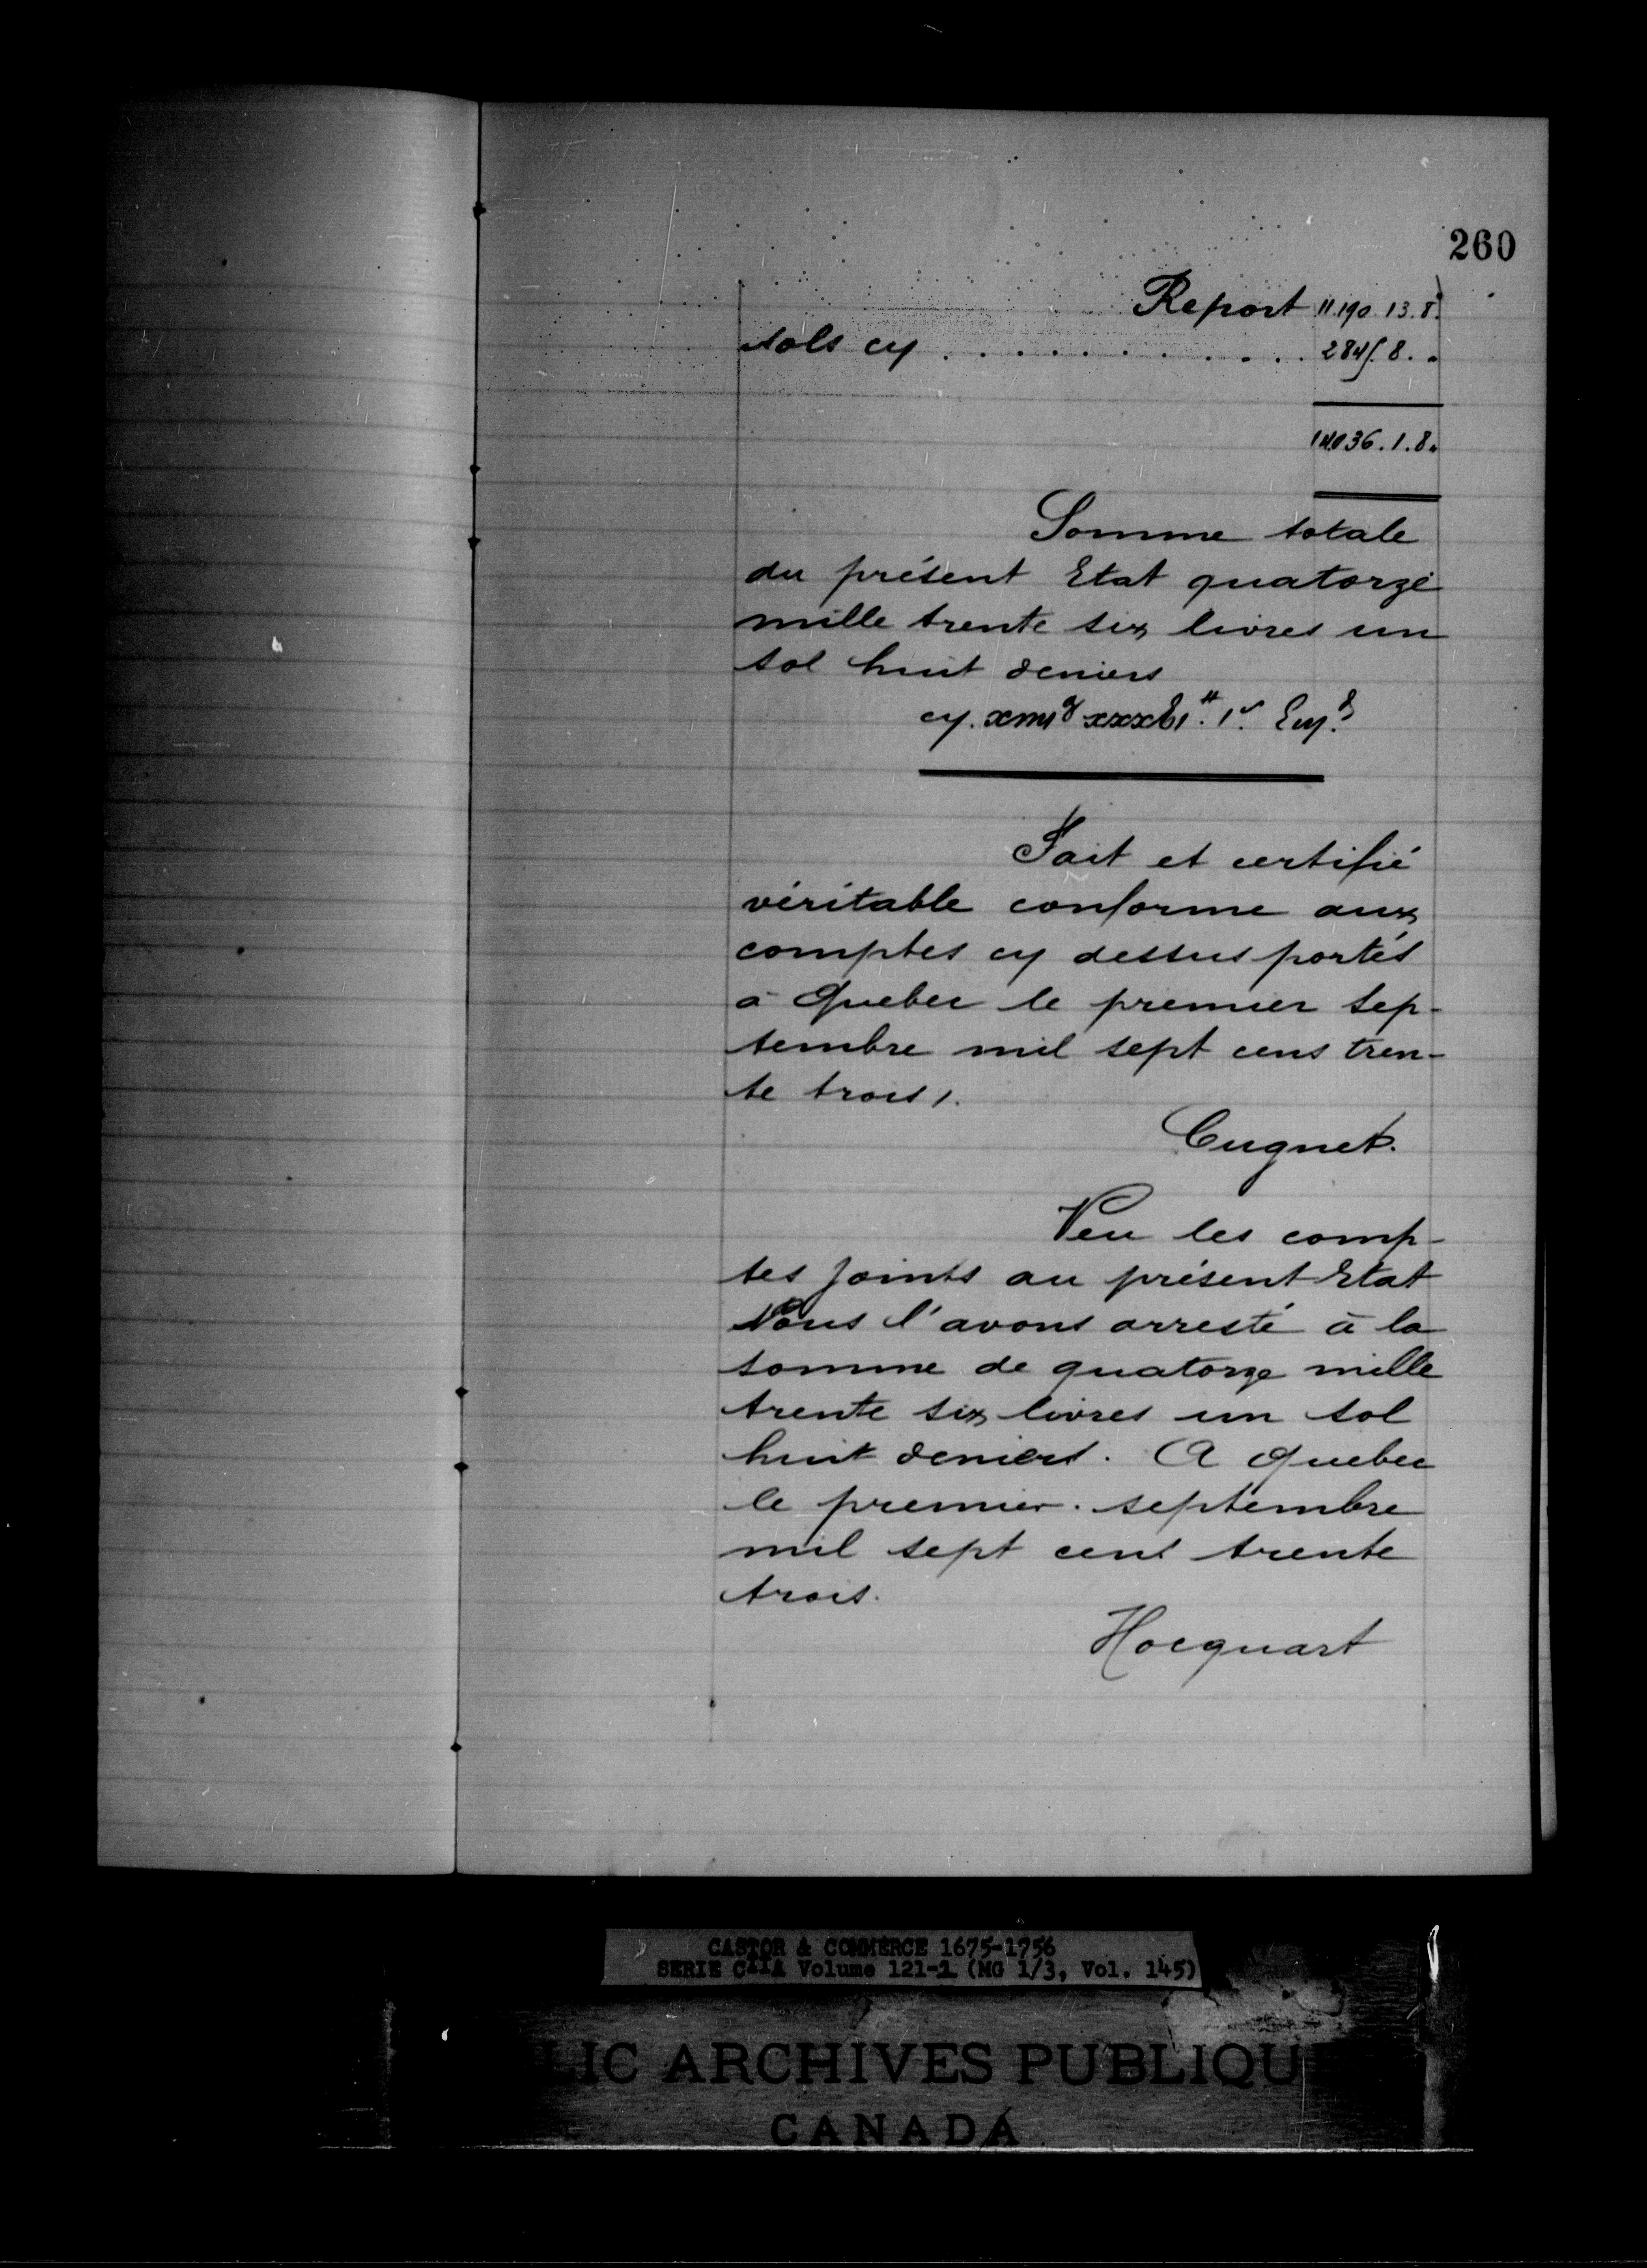 260
Report 11.190 13.8d
sols cy . . . . . . . . . . . . 2845. 8. "
14036.1.8.
Somme totale
du présent Etat quatorze
mille trente six livres un
sol huit deniers
cy.
Fait et certifié
véritable conforme aux
comptes cy dessus portés
à Quebec le premier sep-
tembre mil sept cens tren-
te trois /.
Cugnet.
Veu les comp-
tes joints au présent Etat
Nous l'avons arresté à la
somme de quatorze mille
trente six livres un sol
huit deniers. A Quebec
le premier septembre
mil sept cens trente
trois.
Hocquart
CASTOR & COMMERCE 1675-1756
SERIE C11A Volume 121-1 (MG 1/3, Vol. 145)
LIC ARCHIVES PUBLIQU
CANADA